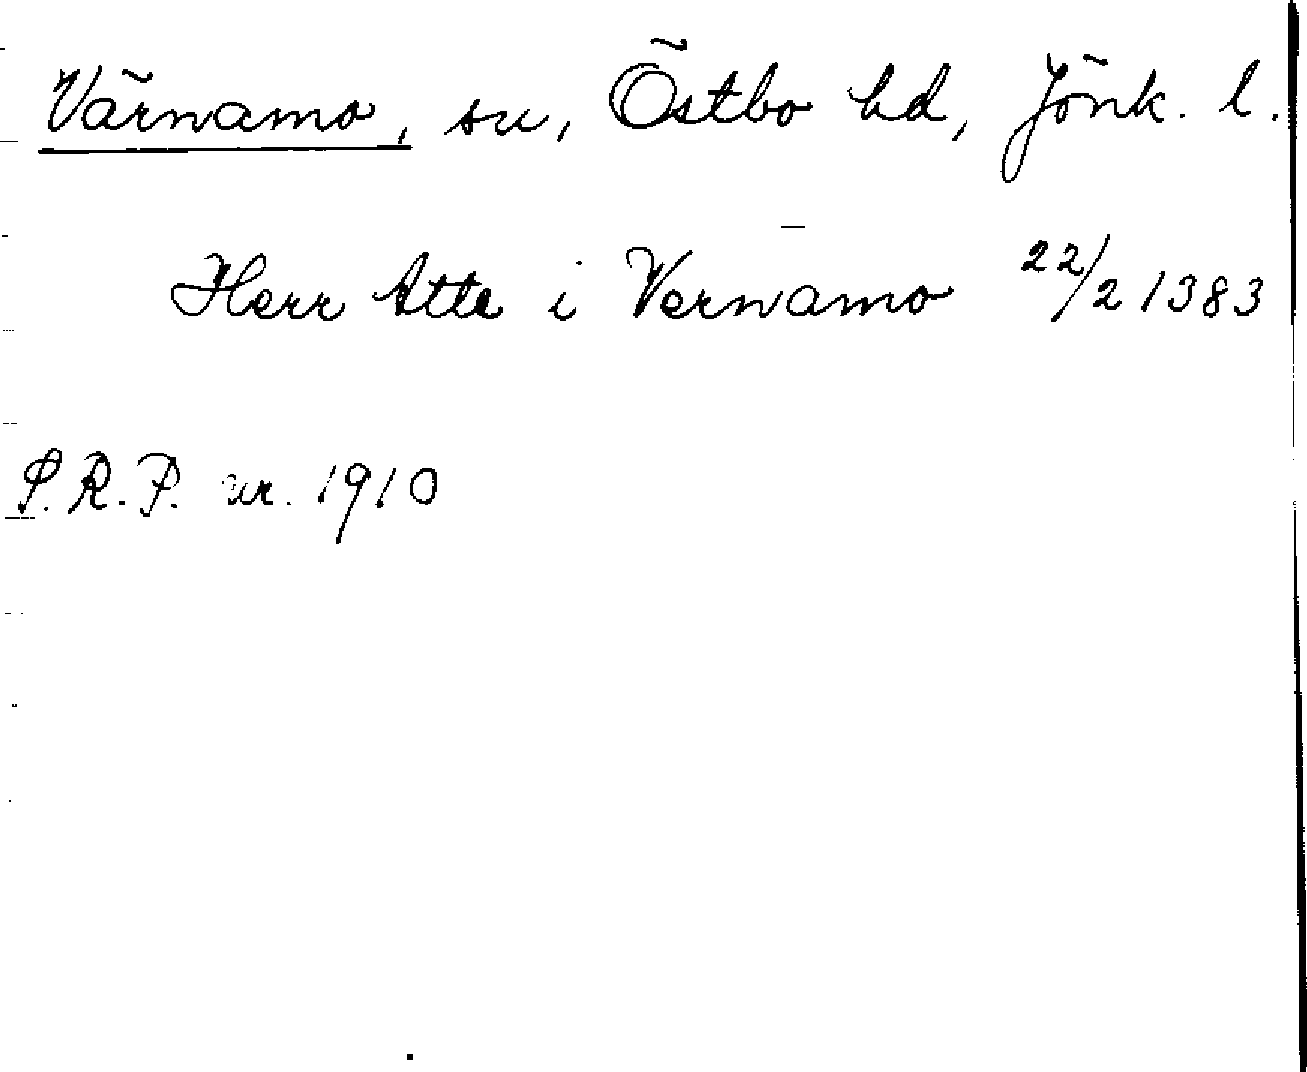 Värnamo, sn, Östbo hd, Jönk. l.
Herr Atte i Vernamo 22/2 1383
S.R.P. nr. 1910